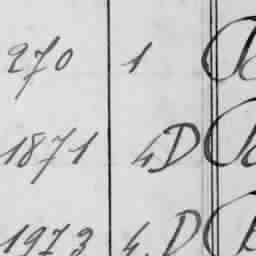 270 1
1871 4D
1973 4.D